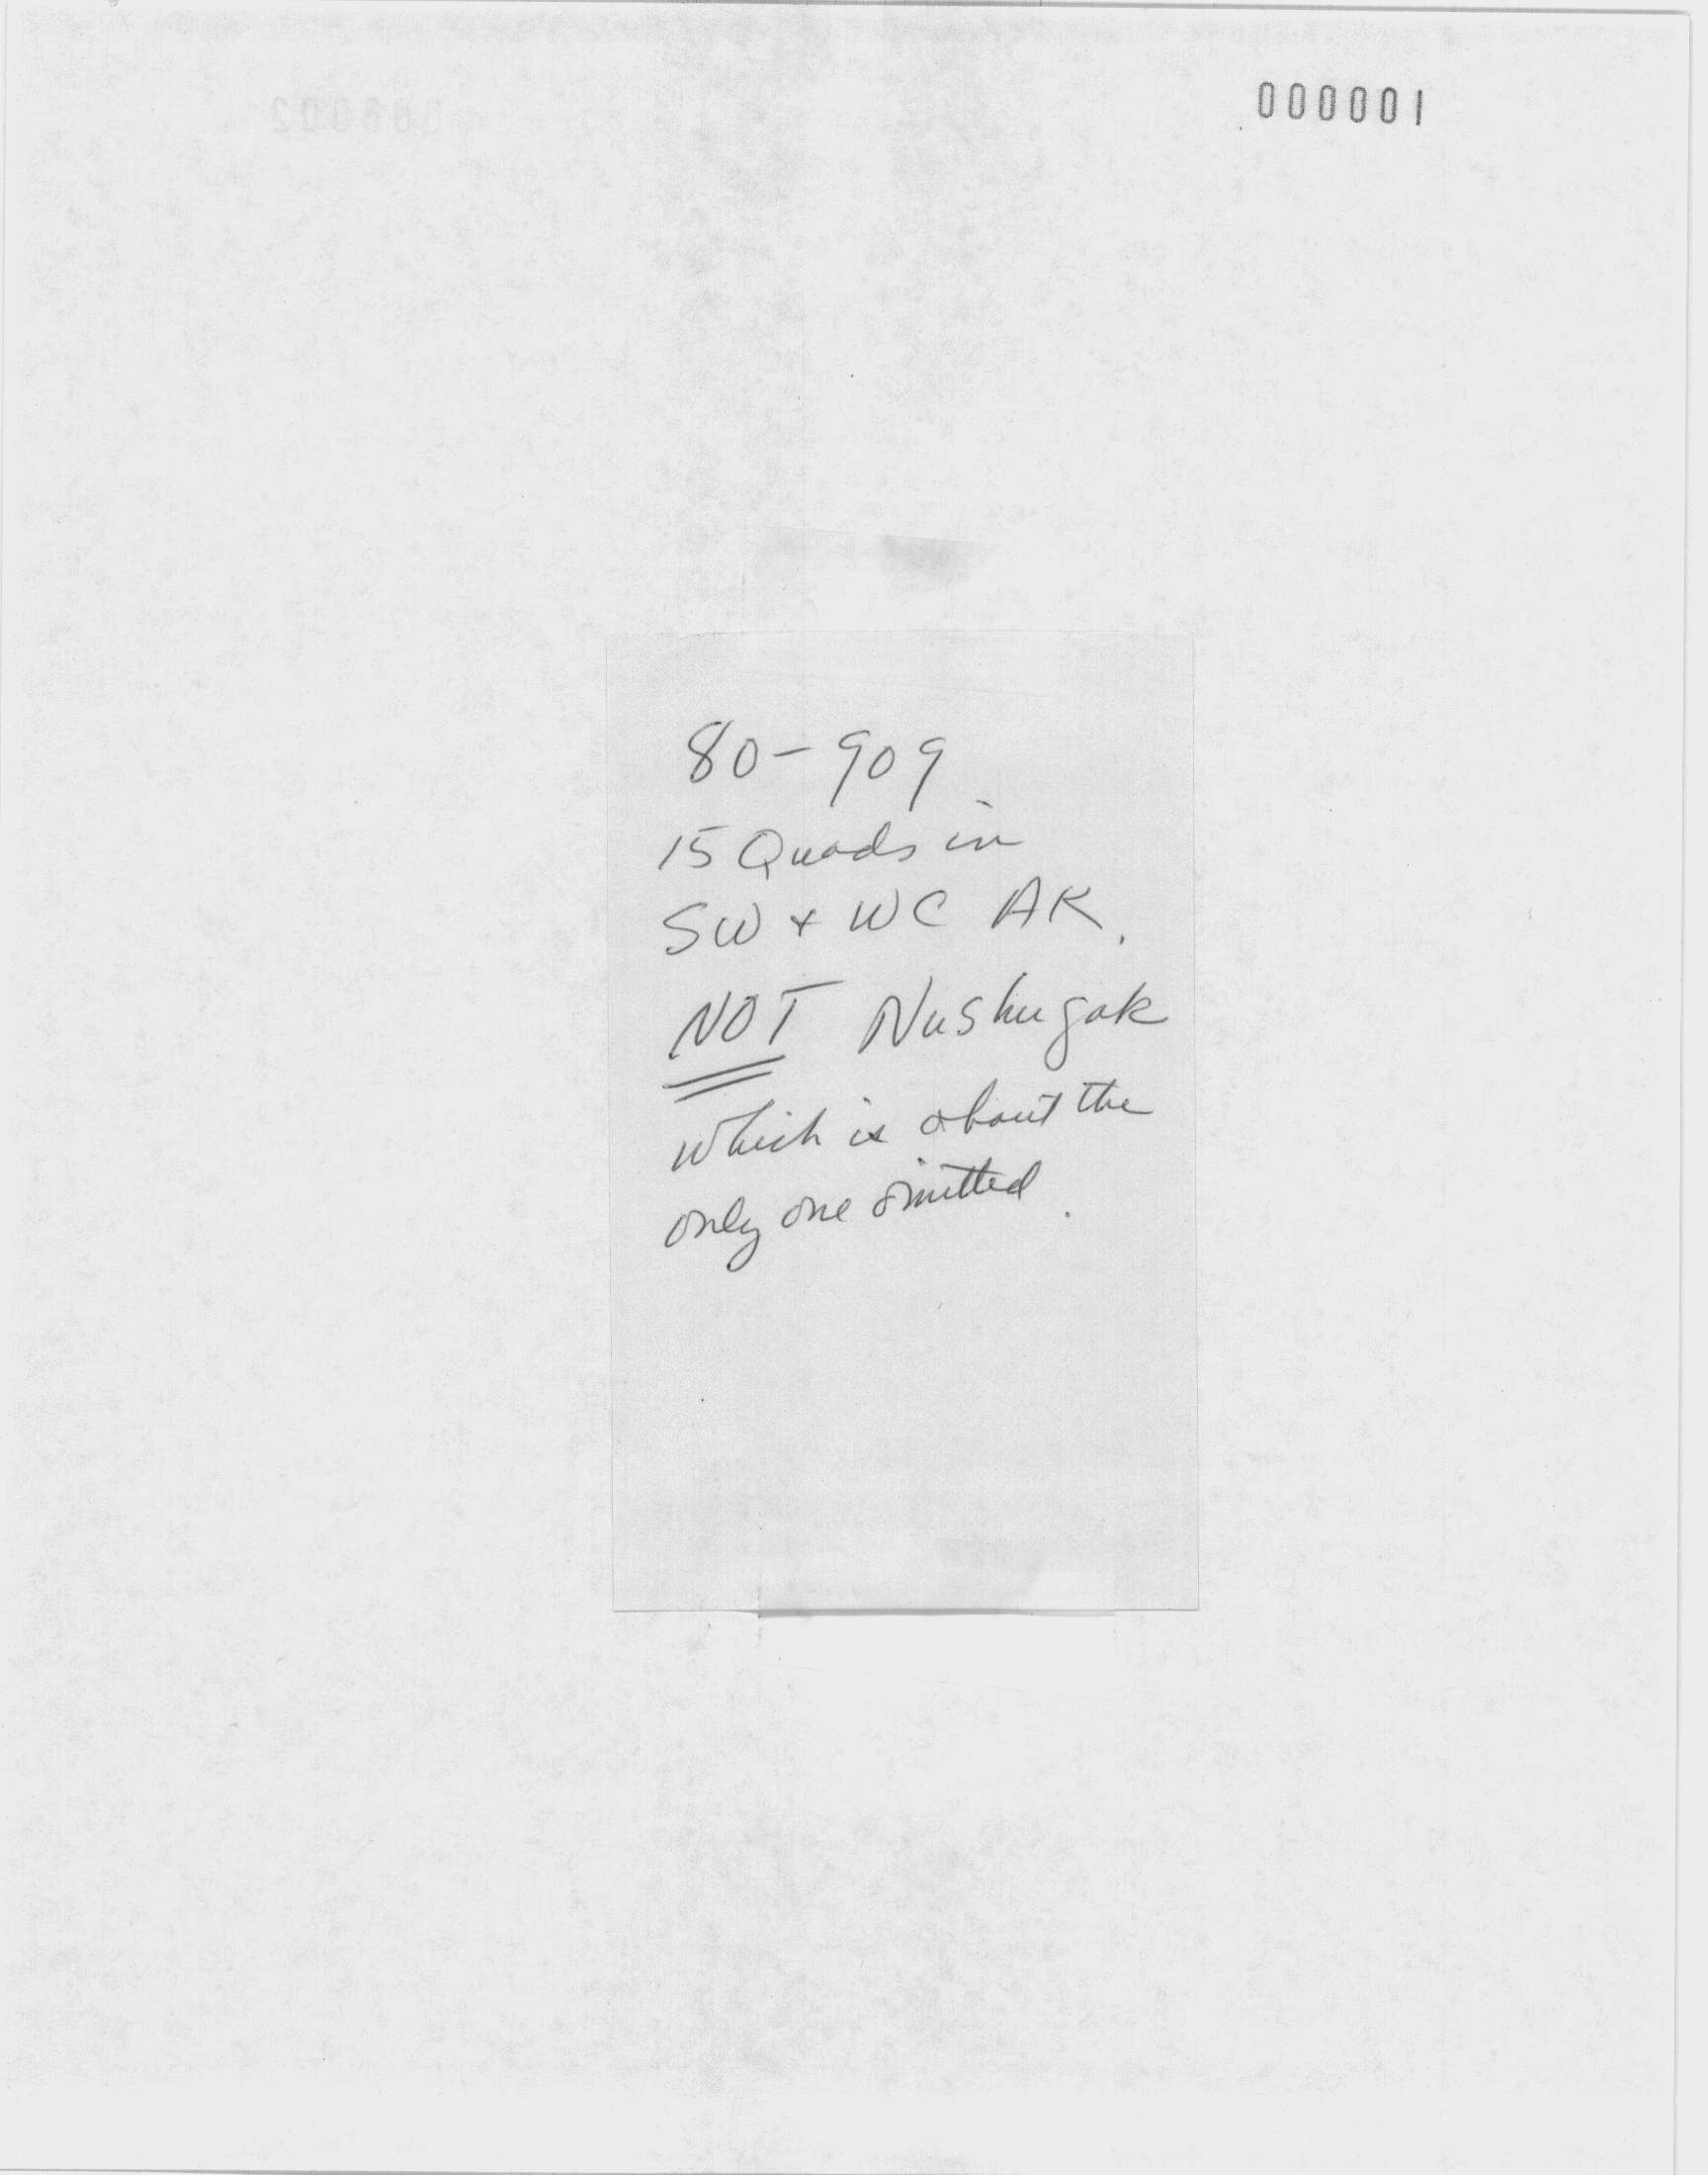 000001
80-909
15 Quads in
SW + WC AK.
NOT Nushugak
which is about the
only one omitted.